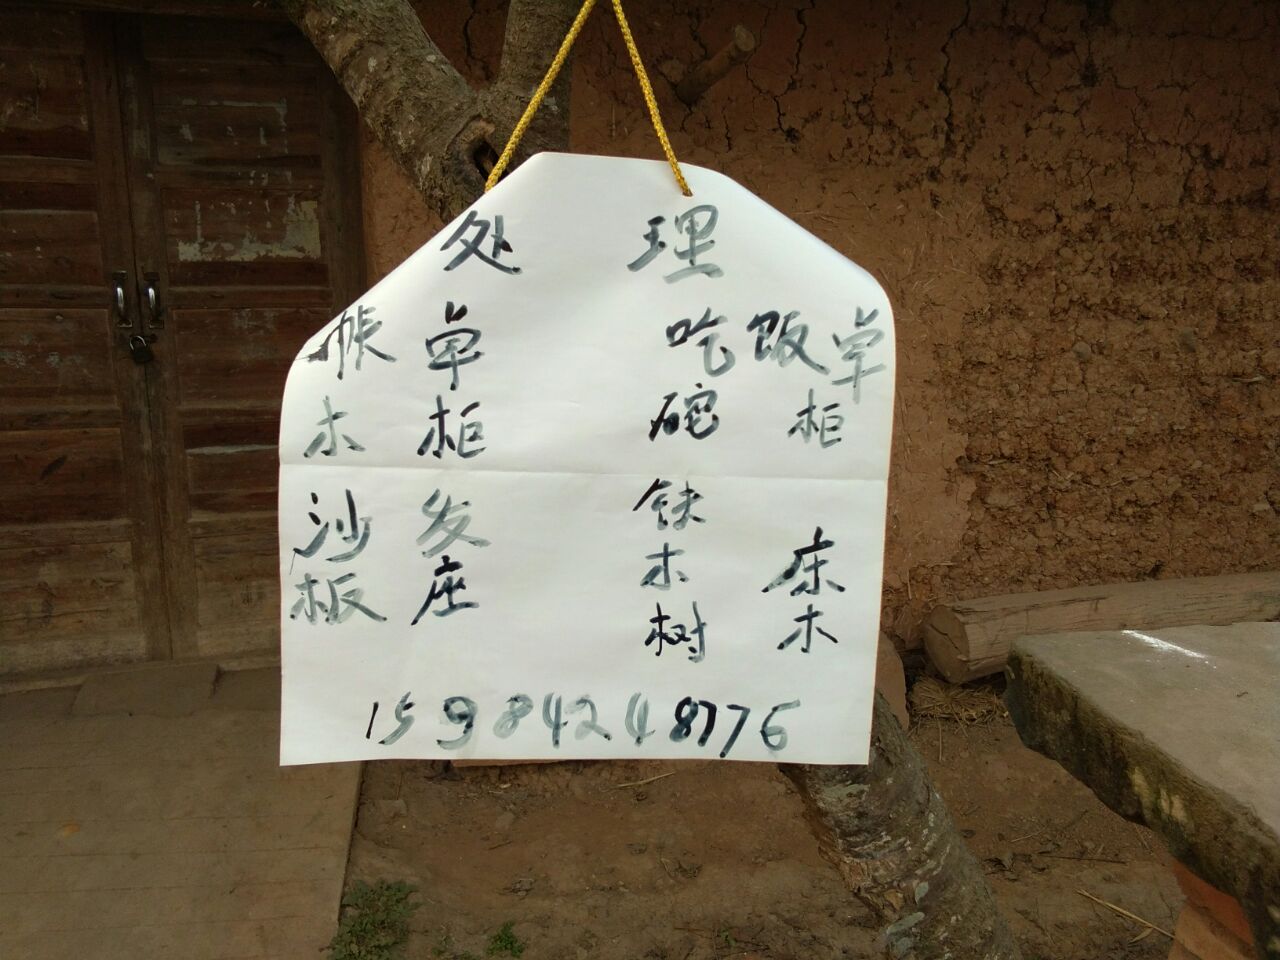 处理
帐单吃饭单
木柜碗柜
沙发铁床
板座木木
树
15984248776